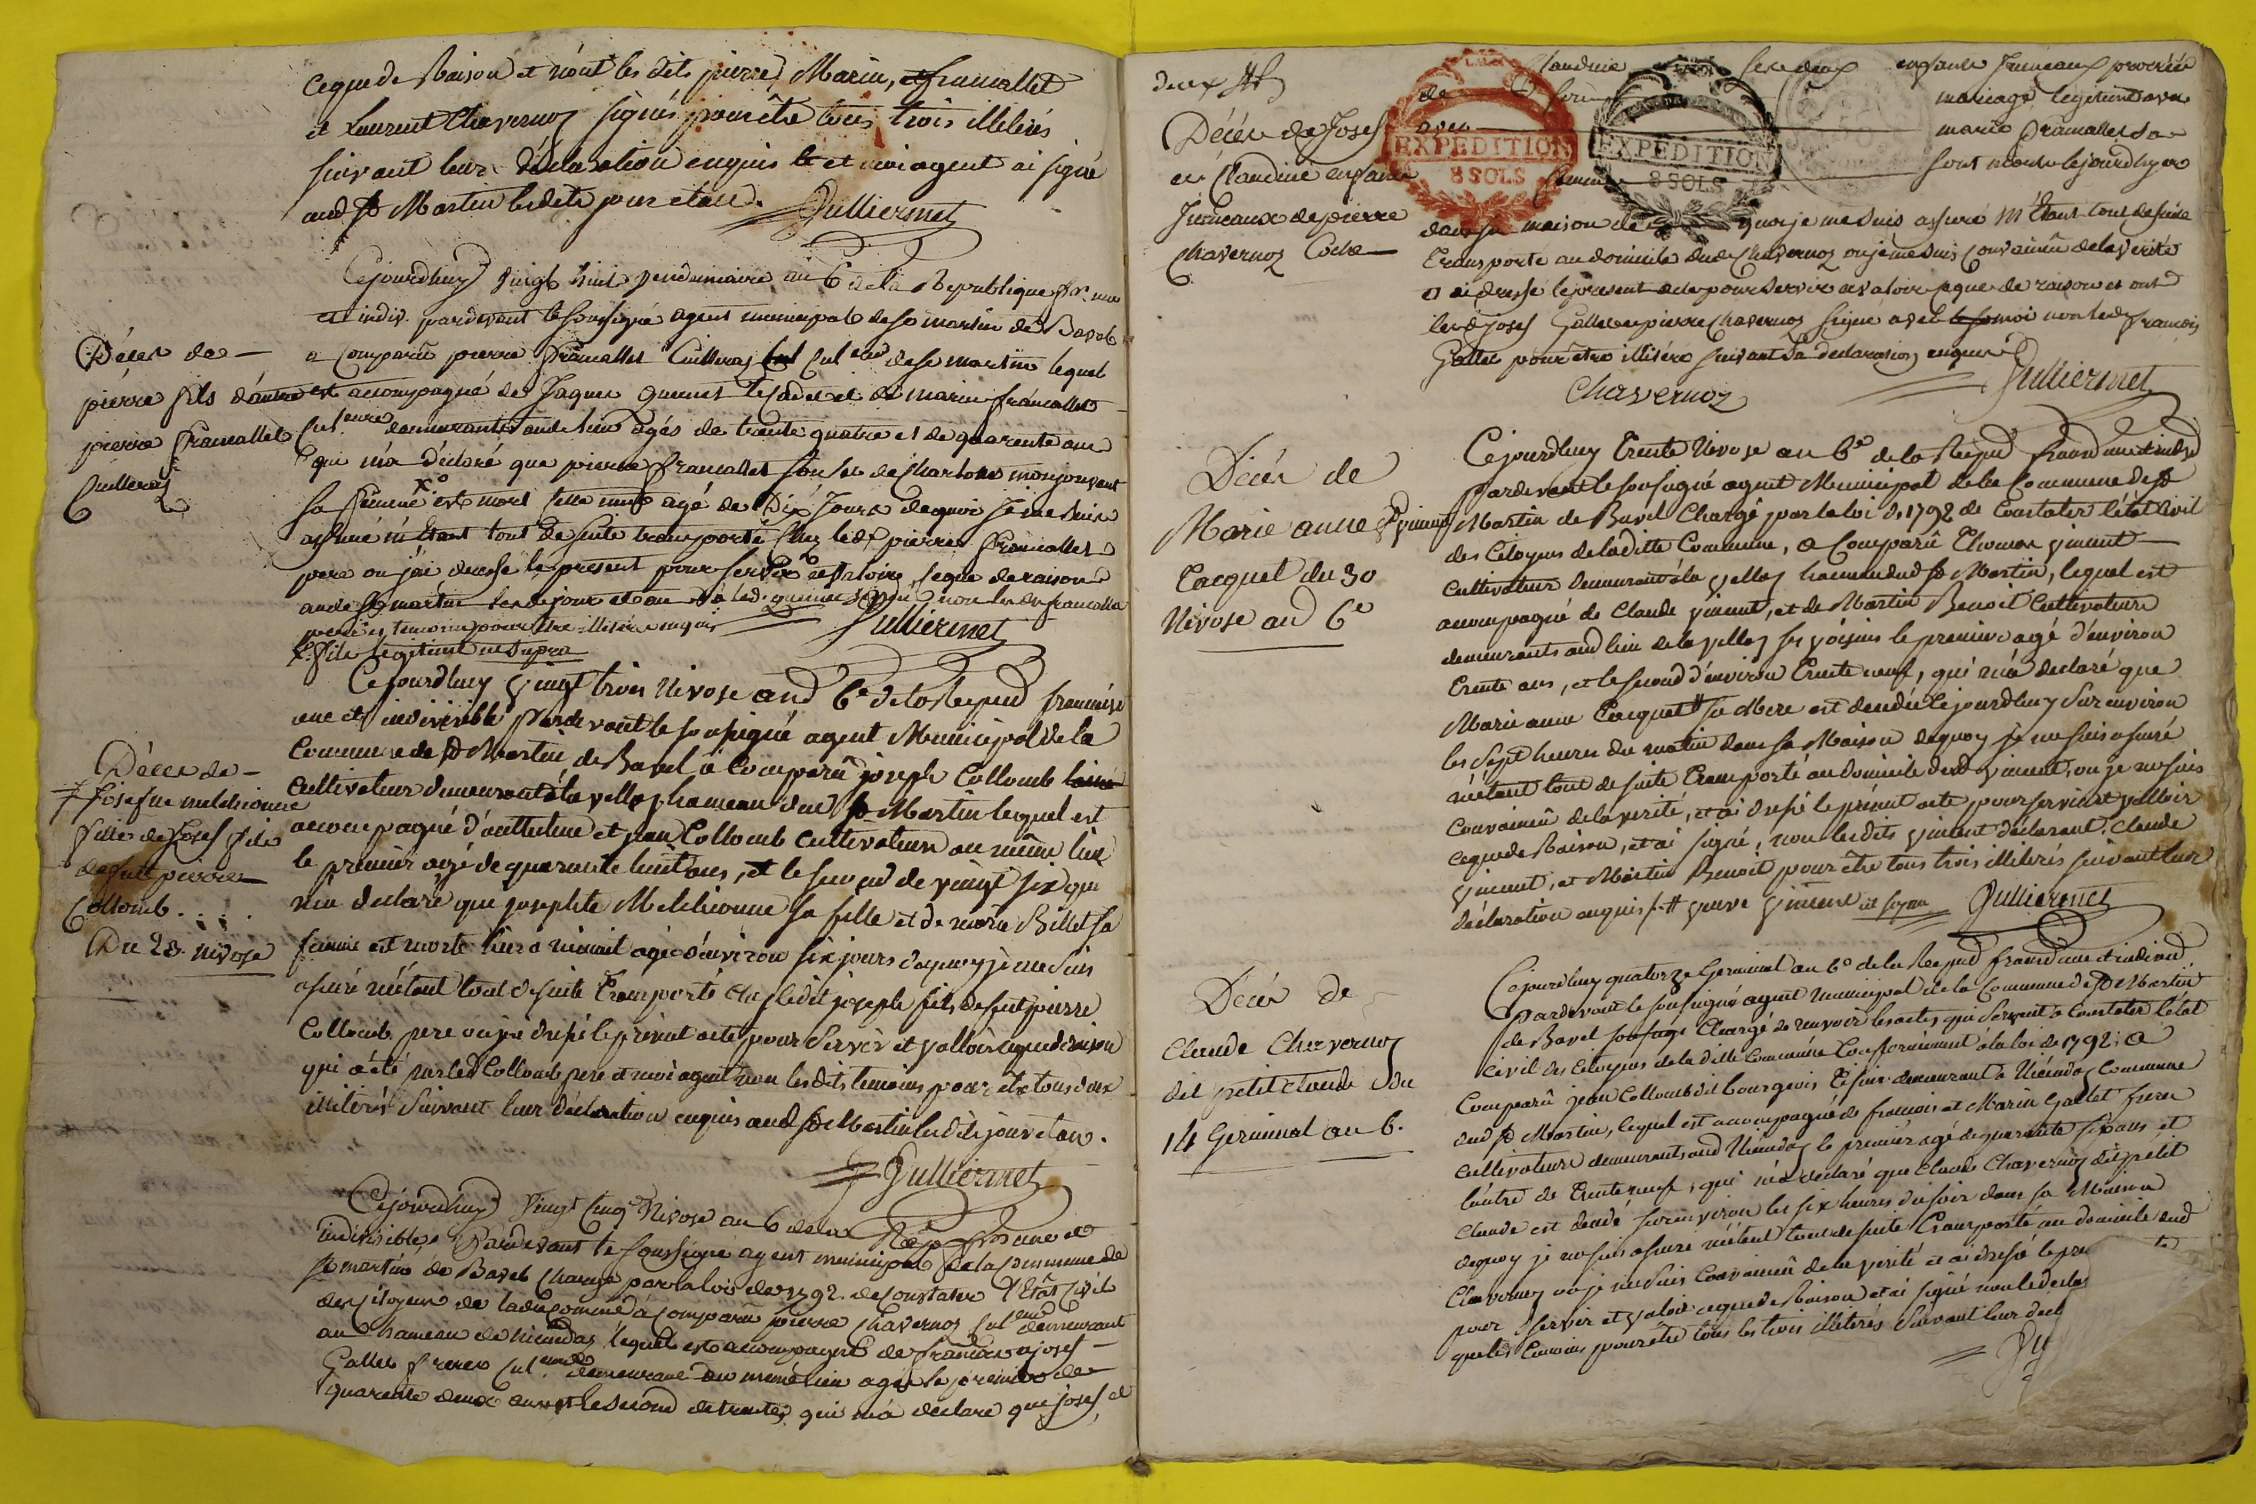 ceque de Raison et n'ont les dits pierre, Marin, et francallet
et Laurent Chavernoz signés pour être tous trois illiterés
suivant leur déclaration enquis et moi agent ai signé
aud St Martin lesdits jour et an. Julliermet
Cejourdhuy vingt huit vendemiaire an 6 de la Republique fr. une
et indiv. pardevant le soussigné agent municipal de St martin de Bavel
Décés de
pierre fils d'autre
pierre francallet
Cuilleraz
a comparû pierre francallet Cuilleraz cul.eur de St martin lequel
est accompagné de Jaques quinet le cadet et de marin francallet
cul.teurs demeurants aud. lieu agés de trente quatre et de quarente ans
qui m'a déclaré que pierre francallet son fils de Charlotte monjouvent
sa femme x° est mort agé de Dix Jours dequoi je me suis
assuré m'étant tout de suite transporté chez led. pierre francallet
pere ou j'ai dressé le present pour servir et valoir ceque de raison
aud. St martin lesd. jour et an led. quinet signé non led. francallet
pere et temoin pour être illiteré enquis Julliermet
x° fils legitime ut supra
Cejourdhuy vingt trois Nivose and 6e de la Repud françoise
une et indivisible pardevant le soussigné agent Municipal de la
Commune de St Martin de Bavel à comparû joseph Collomb
Décés de
josefte melchionne
fille de Josef fils
defut pierre
Collomb
Du 23. nivose
cultivateur demeurant à la vellaz hameau dud St Martin lequel est
accompagné d'anthelme et jean Collomb cultivateurs au même lieu
le premier agé de quarante huit ans, et le second de vingt six qui
m'a declaré que josephte Melchionne sa fille et de marie Billet sa
femme est morte hier à minuit agée d'environ six jours dequoy je me suis
assuré m'étant tout de suite transporté chez ledit joseph fils defut pierre
Collomb pere ou j'ai dressé le présent acte pour servir et valloir ceque de raison
qui a été par led Collomb pere et moi agent non les dits temoins pour etre tous deux
illiterés suivant leur déclaration enquis aud St Martin lesdits jour et an.
Julliermet
Cejourdhuy vingt cinq Nivose an 6 de la Rép. frse une et
indivisible Pardevant le soussigné agent municipal de la commune de
St martin de Bavel chargé par la loi de 1792. de constater l'Etât Civil
des citoyens de ladte commune à comparu pierre chavernoz cul.teur demeurant
au hameau de nicudaz lequel est accompagné de francois et josef
Gallet freres cul.teurs demeurant au même lieu agés le premier de
quarente deux ans et le second de trente, qui m'a déclaré que josef et
deux
Décés de Josef
et Claudine enfans
Jumeaux de pierre
Chavernoz
Claudine ses deux enfants Jumeaux procréés
de son mariage legitime avec
avec marie francallet sa
femme sont morts lejourdhyer
EXPEDITION
8 SOLS
EXPEDITION
8 SOLS
dans sa maison de quoi je me suis assuré m'étant tout de suite
transporté au domicile dud. Chavernoz ou je me suis convaincû de la verité
et ai dressé le present acte pour servir et valoir ceque de raison et ont
lesd. Josef Gallet et pierre Chavernoz signé avec moi non led. francois
Gallet pour être illiteré suivant sa declaration enquis
Chavernoz Julliermet
Décés de
Marie anne
Tacquet du 30
Nivose and 6e
Cejourdhuy Trente Nivose an 6e de la Repud francd une et indivd
pardevant le soussigné agent Municipal de la Commune de St
Martin de Bavel Chargé par la loi de 1792 de Constater l'état Civil
des Citoyens de la ditte Commune, a Comparû Thomas yvinent
cultivateur demeurant à la vellaz hameau dud St Martin, lequel est
accompagné de Claude yvinent, et de Martin Benoit Cultivateurs
demeurants aud lieu de la vellaz ses voisins le premier agé d'environ
Trente ans, et le second d'environ Trente neuf, qui m'a declaré que
Marie anne Tacquet # sa Mere est décédée lejourdhuy sur environ
les sept heures du matin dans sa Maison dequoy je me suis assuré
m'étant tout de suite Transporté au domicile dud yvinent, ou je me suis
convaincû de la verité, et ai dressé le présent acte pour servir et valloir
ceque de Raison, et ai signé, non les dits yvinent déclarant, Claude
yvinent, et Martin Benoit pour être tous trois illiterés suivant leur
déclaration enquis /. # veuve yvinent Julliermet
Décés de
Claude Chavernoz
dit petit claude du
14 Germinal an 6.
Cejourdhuy quatorze Germinal an 6e de la Repud francd une et indivd.
pardevant le soussigné agent municipal de la Commune de St Martin
de Bavel Chargé de recevoir les actes qui servent à Constater l'état
civil des Citoyens de la ditte Commune Conformement à la loi de 1792; a
Comparû jean Collomb dit bourgeois Tisseur demeurant à Nicudaz Commune
dud St Martin, lequel est accompagné de francois et Marin Gallet freres
cultivateurs demeurants aud Nicudaz le premier agé de quarante six ans et
l'autre de Trente neuf, qui m'a declaré que Claude Chavernoz dit petit
Claude est décédé sur environ les six heures du soir dans sa Maison
dequoy je me suis assuré m'étant tout de suite Transporté au domicile dud
Chavernoz ou je me suis Convaincû de la verité et ai dressé le pre
pour servir et valoir ceque de Raison et ai signé non le decla
que les temoins pour être tous les trois illiterés suivant leur decl
Ju